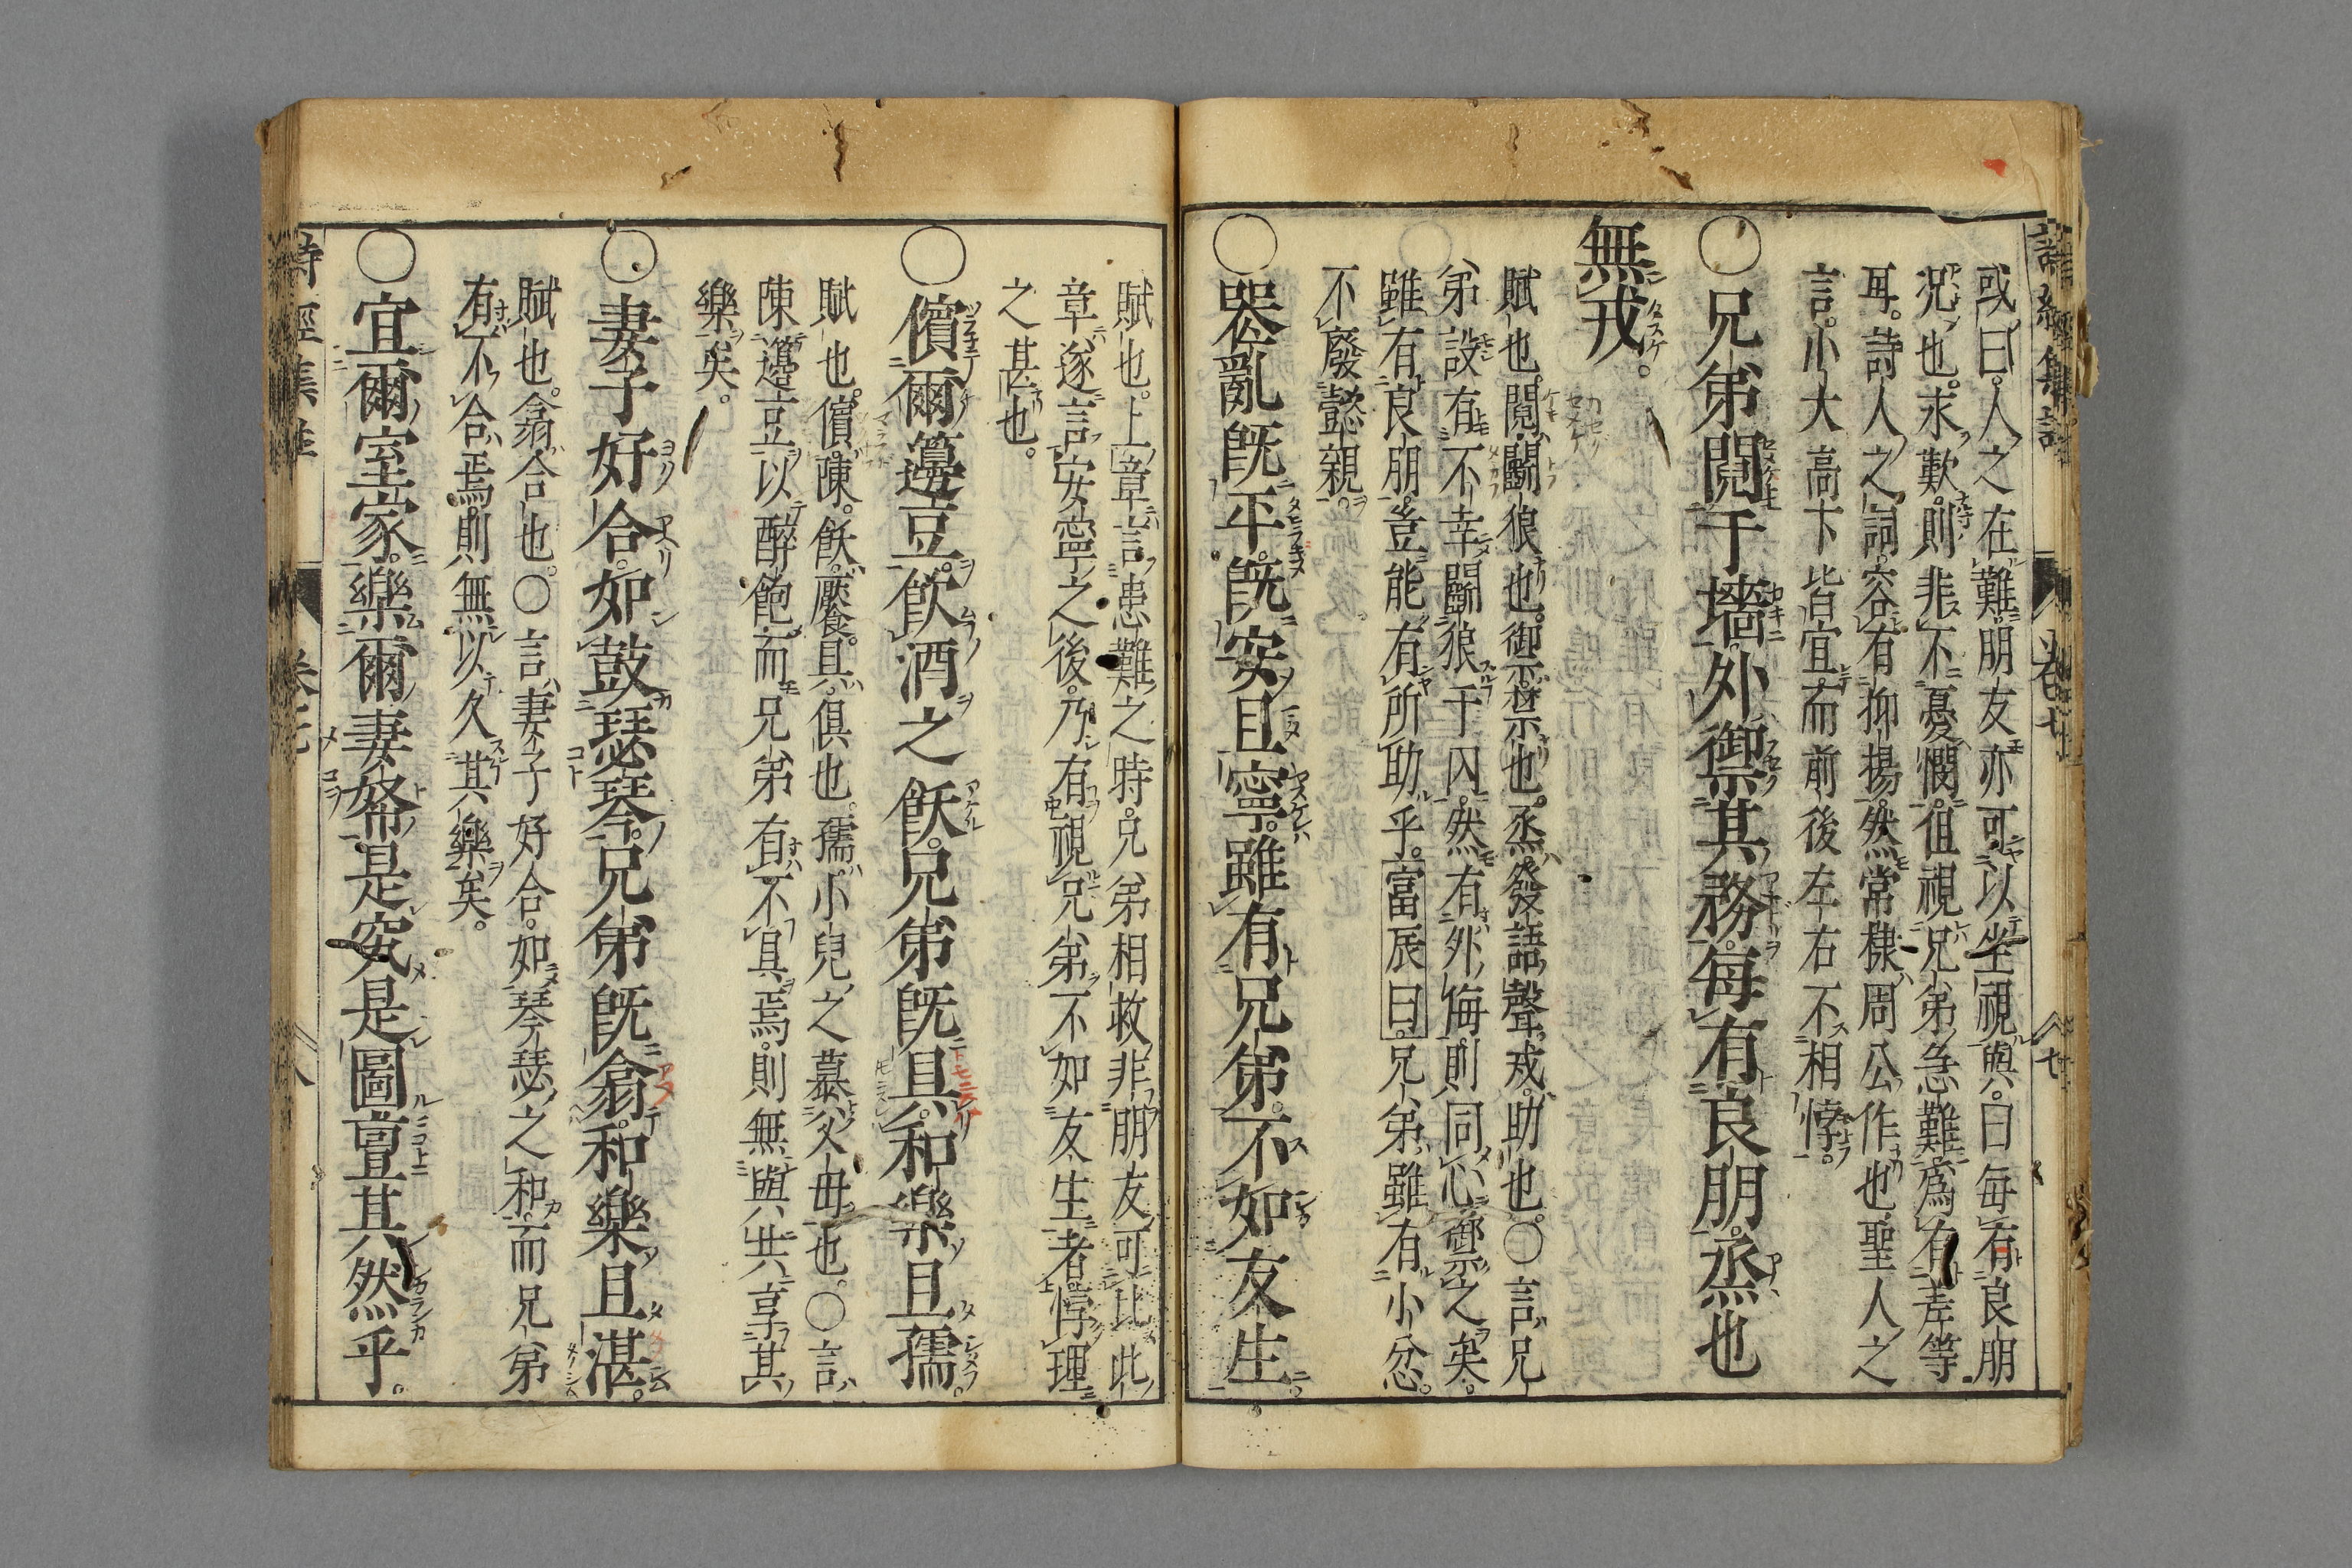 或曰。人之在難。朋友亦可以坐視與。曰每有良朋
況也求歎。則非不憂憫。但視兄弟急難為有差等
耳。詩人之詞。容有抑揚。然常棣周公作也。聖人之
言。小大高下皆宜。而前後左右不相悖。
○兄弟鬩于墻。外禦其務。每有良朋。烝也
無戎。
賦也。鬩。鬬狠也。御禦也。烝。發語聲。戎。助也。○言兄
弟設有不幸鬬狠于內。然有外侮。則同心禦之矣。
雖有良朋。豈能有所助乎。富辰曰。兄弟雖有小忿。
不廢懿親。
○喪亂既平。既安且寧。雖有兄弟。不如友生。
賦也。上章言患難之時。兄弟相救。非朋友可比。此
章遂言安寧之後。乃有視兄弟不如友生者。悖理
之甚也。
○儐爾籩豆。飲酒之飫。兄弟既具。和樂且孺。
賦也。儐。陳。飫。饜。具。俱也。孺。小兒之慕父母也。○言
陳籩豆以醉飽。而兄弟有不具焉。則無與共享其
樂矣。
○妻子好合。如鼓瑟琴。兄弟既翕。和樂且湛。
賦也。翕合也。○言妻子好合。如琴瑟之和。而兄弟
有不合焉。則無以久其樂矣。
○宜爾室家。樂爾妻帑。是究是圖。亶其然乎。